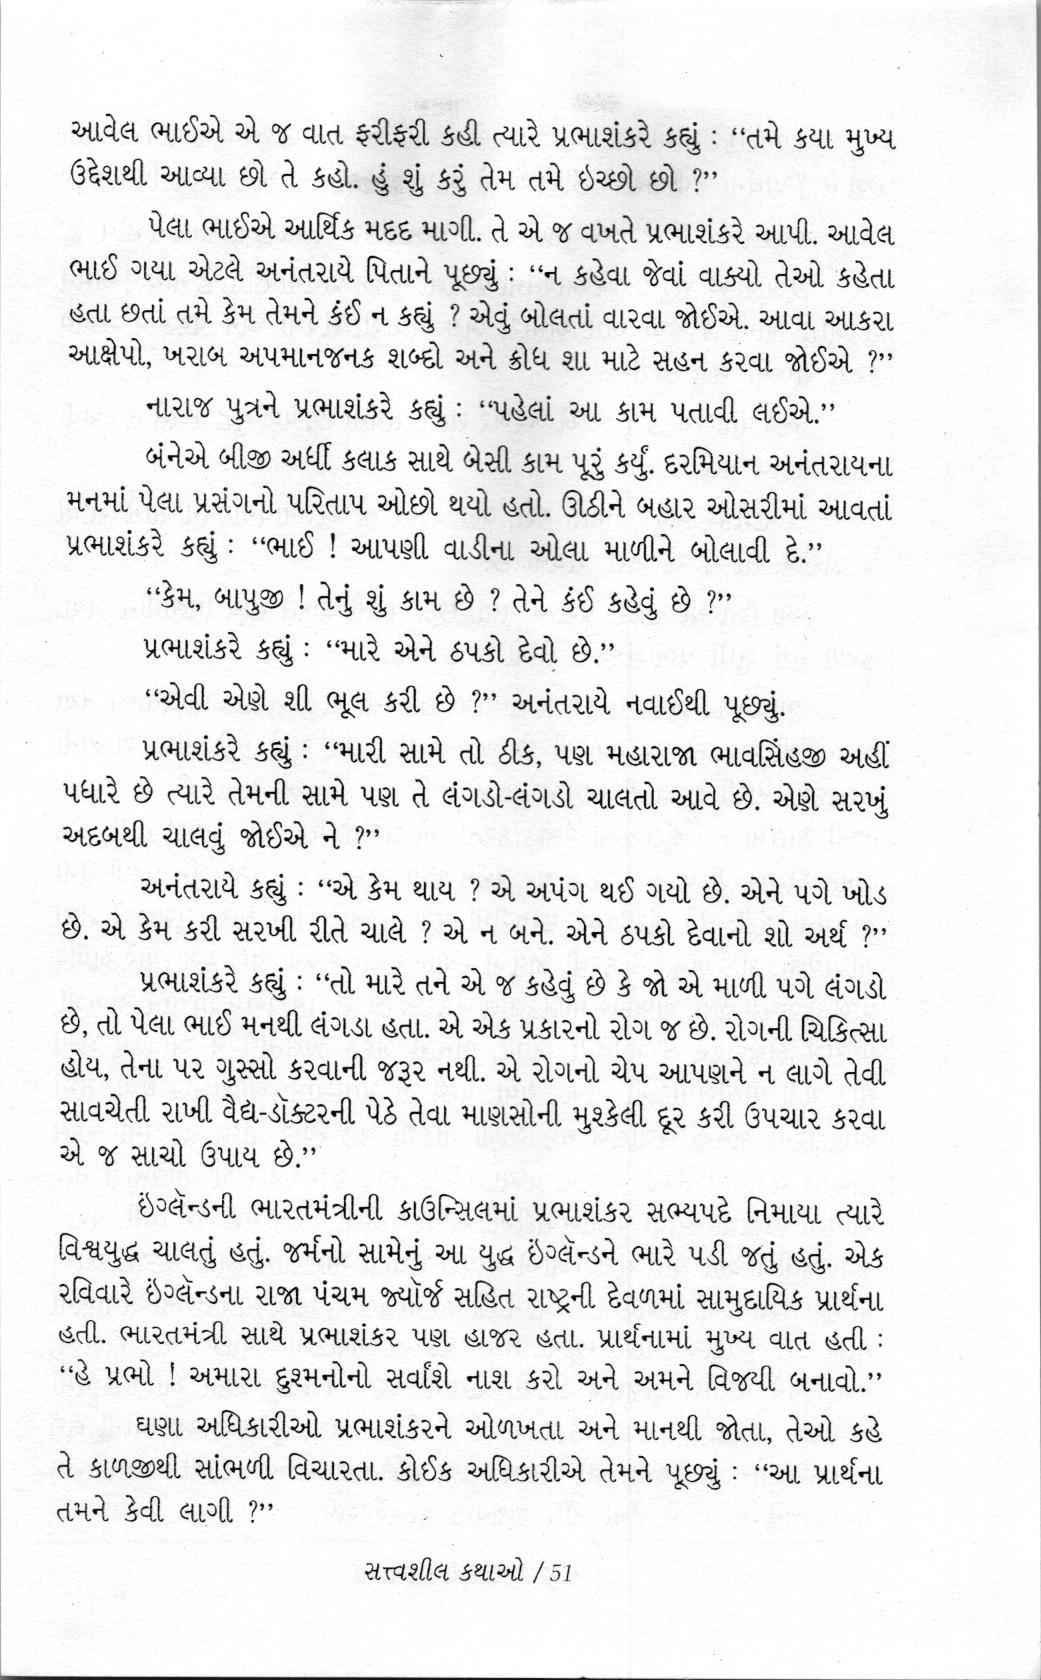 આવેલ ભાઈએ એ જ વાત ફરીફરી કહી ત્યારે પ્રભાશંકરે કહ્યું : “તમે કયા મુખ્ય
ઉદ્દેશથી આવ્યા છો તે કહો. હું શું કરું તેમ તમે ઇચ્છો છો ?”
પેલા ભાઈએ આર્થિક મદદ માગી. તે એ જ વખતે પ્રભાશંકરે આપી. આવેલ
ભાઈ ગયા એટલે અનંતરાયે પિતાને પૂછ્યું : “ન કહેવા જેવાં વાક્યો તેઓ કહેતા
હતા છતાં તમે કેમ તેમને કંઈ ન કહ્યું ? એવું બોલતાં વારવા જોઈએ. આવા આકરા
આક્ષેપો, ખરાબ અપમાનજનક શબ્દો અને ક્રોધ શા માટે સહન કરવા જોઈએ ?”
નારાજ પુત્રને પ્રભાશંકરે કહ્યું : “પહેલાં આ કામ પતાવી લઈએ.”
બંનેએ બીજી અર્ધી કલાક સાથે બેસી કામ પૂરું કર્યું. દરમિયાન અનંતરાયના
મનમાં પેલા પ્રસંગનો પરિતાપ ઓછો થયો હતો. ઊઠીને બહાર ઓસરીમાં આવતાં
પ્રભાશંકરે કહ્યું : “ભાઈ ! આપણી વાડીના ઓલા માળીને બોલાવી દે.”
“કેમ, બાપુજી ! તેનું શું કામ છે ? તેને કંઈ કહેવું છે ?”
પ્રભાશંકરે કહ્યું : “મારે એને ઠપકો દેવો છે.”
“એવી એણે શી ભૂલ કરી છે ?” અનંતરાયે નવાઈથી પૂછ્યું.
પ્રભાશંકરે કહ્યું : “મારી સામે તો ઠીક, પણ મહારાજા ભાવસિંહજી અહીં
પધારે છે ત્યારે તેમની સામે પણ તે લંગડો-લંગડો ચાલતો આવે છે. એણે સરખું
અદબથી ચાલવું જોઈએ ને ?”
અનંતરાયે કહ્યું : “એ કેમ થાય ? એ અપંગ થઈ ગયો છે. એને પગે ખોડ
છે. એ કેમ કરી સરખી રીતે ચાલે ? એ ન બને. એને ઠપકો દેવાનો શો અર્થ ?”
પ્રભાશંકરે કહ્યું : “તો મારે તને એ જ કહેવું છે કે જો એ માળી પગે લંગડો
છે, તો પેલા ભાઈ મનથી લંગડા હતા. એ એક પ્રકારનો રોગ જ છે. રોગની ચિકિત્સા
હોય, તેના પર ગુસ્સો કરવાની જરૂર નથી. એ રોગનો ચેપ આપણને ન લાગે તેવી
સાવચેતી રાખી વૈદ્ય-ડૉક્ટરની પેઠે તેવા માણસોની મુશ્કેલી દૂર કરી ઉપચાર કરવા
એ જ સાચો ઉપાય છે.”
ઇંગ્લૅન્ડની ભારતમંત્રીની કાઉન્સિલમાં પ્રભાશંકર સભ્યપદે નિમાયા ત્યારે
વિશ્વયુદ્ધ ચાલતું હતું. જર્મનો સામેનું આ યુદ્ધ ઇંગ્લૅન્ડને ભારે પડી જતું હતું. એક
રવિવારે ઇંગ્લૅન્ડના રાજા પંચમ જ્યૉર્જ સહિત રાષ્ટ્રની દેવળમાં સામુદાયિક પ્રાર્થના
હતી. ભારતમંત્રી સાથે પ્રભાશંકર પણ હાજર હતા. પ્રાર્થનામાં મુખ્ય વાત હતી :
“હે પ્રભો ! અમારા દુશ્મનોનો સર્વાંશે નાશ કરો અને અમને વિજયી બનાવો.”
ઘણા અધિકારીઓ પ્રભાશંકરને ઓળખતા અને માનથી જોતા, તેઓ કહે
તે કાળજીથી સાંભળી વિચારતા. કોઈક અધિકારીએ તેમને પૂછ્યું : “આ પ્રાર્થના
તમને કેવી લાગી ?”
સત્ત્વશીલ કથાઓ / 51